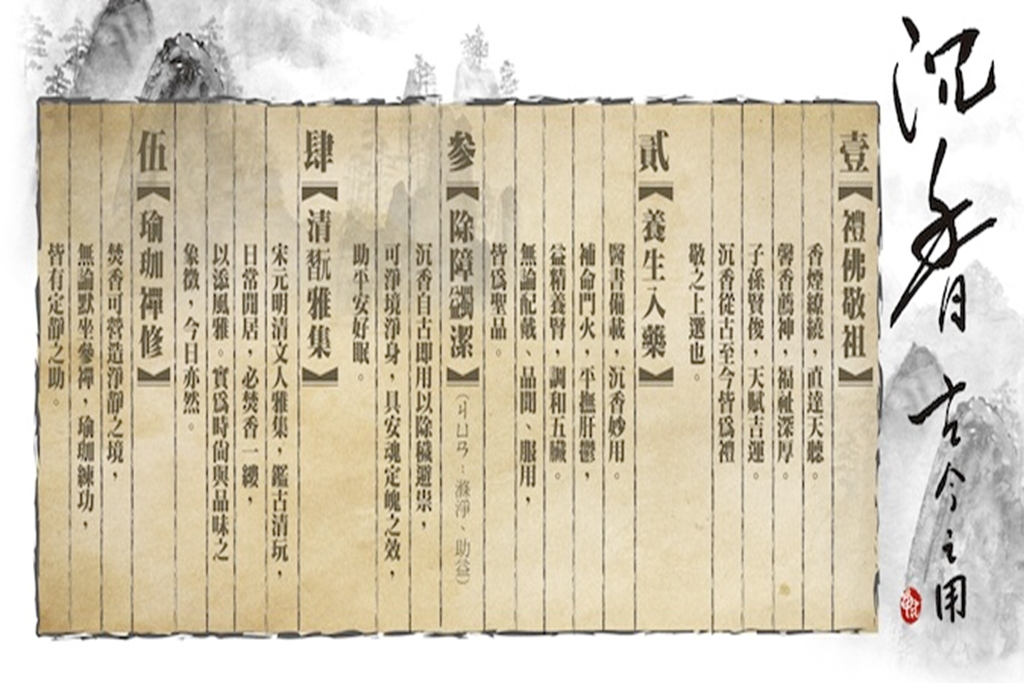 沉香古今之用
壹【禮佛敬祖】
香煙繚繞，直達天聽。
馨香薦神，福祉深厚。
子孫賢俊，天賦吉運。
沉香從古至今皆爲禮
敬之上選也。
貳【養生入藥】
醫書備載，沉香妙用。
補命門火，平撫肝鬱，
益精養腎，調和五臟。
無論配戴、品聞、服用，
皆爲聖品。
參【除障蠲潔】（ㄐㄩㄢ：滌淨、助益）
沉香自古即用以除穢避祟，
可淨境淨身，具安魂定魄之效，
助平安好眠。
肆【清翫雅集】
宋元明清文人雅集，鑑古清玩，
日常閒居，必焚香一縷，
以添風雅。實爲時尚與品味之
象徵，今日亦然。
伍【瑜珈禪修】
焚香可營造淨靜之境，
無論默坐參禪，瑜珈練功，
皆有定靜之助。